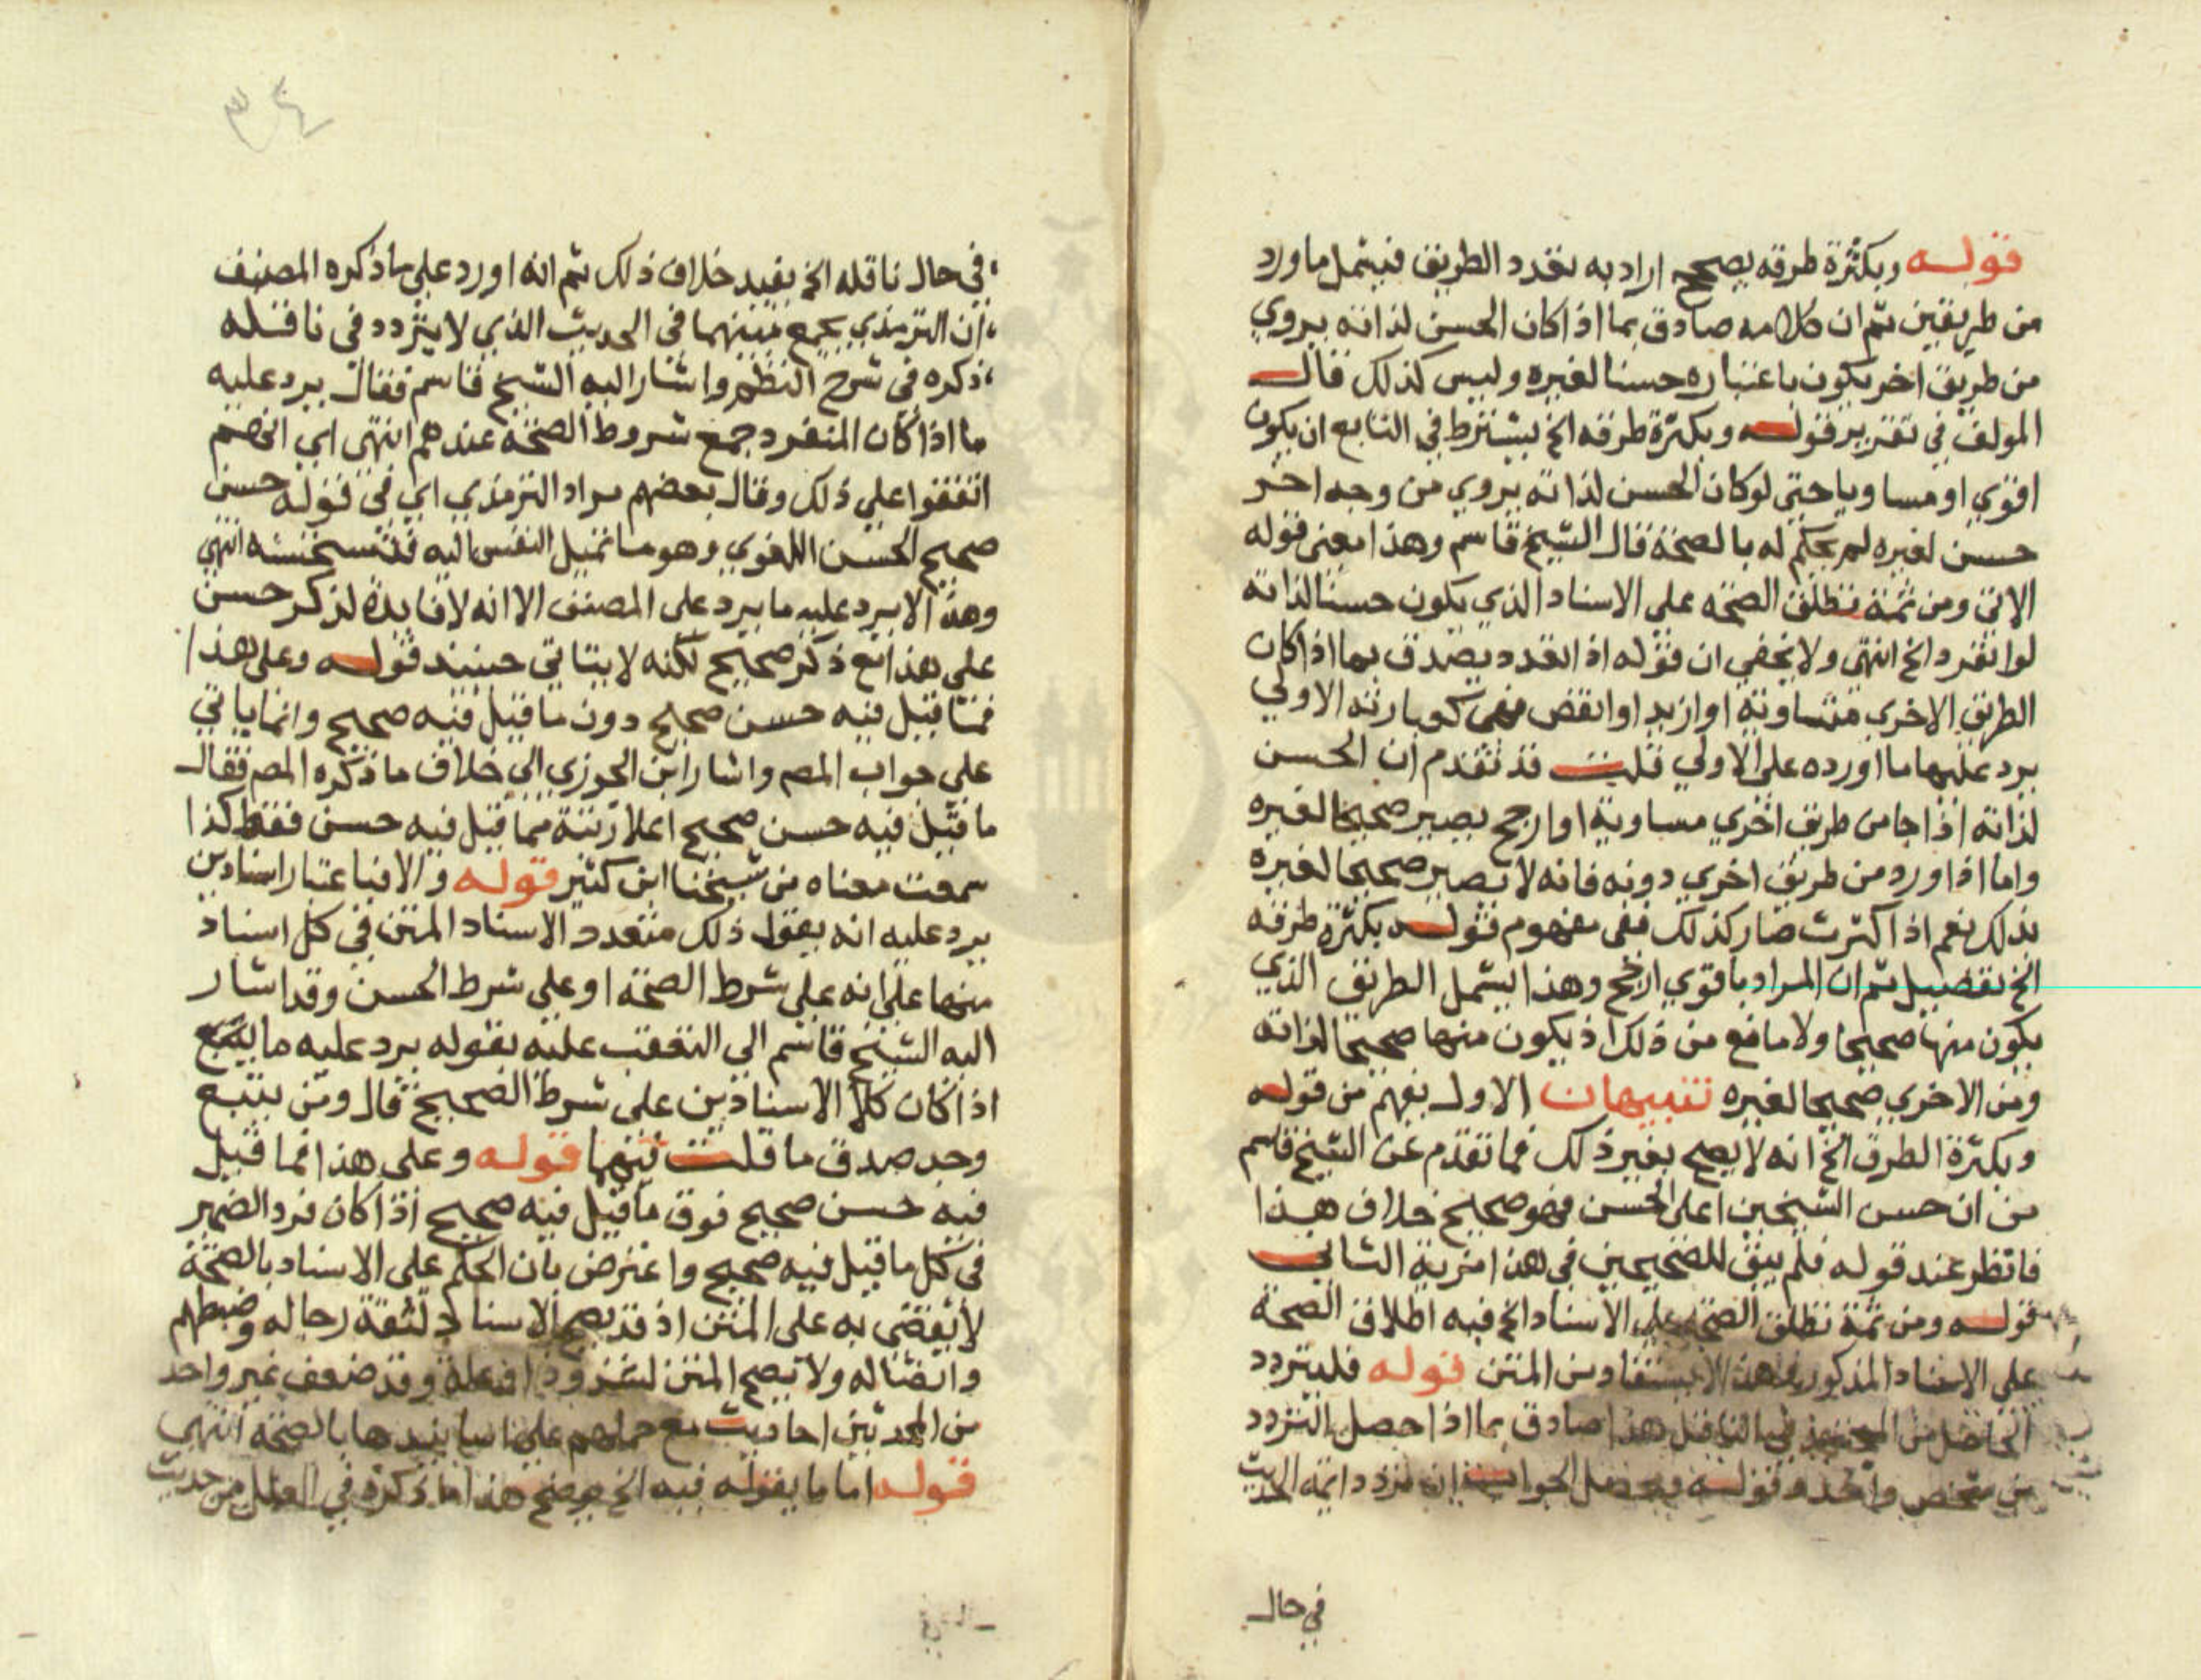 قوله وبكثرة طرقه يصحح اراد به تعدد الطريق فيشمل ما ورد
من طريقين ثم ان كلامه صادق بما اذا كان الحسن لذاته يروي
من طريق اخر يكون باعتباره حسنا لغيره وليس كذلك قال
المولف في تقرير قوله وبكثرة طرقه الخ يشترط في التابع ان يكون
اقوي او مساويا حتى لو كان الحسن لذاته يروي من وجه اخر
حسن لغيره لم يحكم له بالصحة قال الشيخ قاسم وهذا معنى قوله
الاتي ومن ثمة تطلق الصحة على الاسناد الذي يكون حسنا لذاته
لو انفرد الخ انتهى ولا يخفي ان قوله اذا تعدد يصدق بما اذا كان
الطريق الاخري مساوية او ازيد او انقص فهي كعبارته الاولي
يرد عليها ما اورده على الاولي قلت قد تقدم ان الحسن
لذاته اذا جا من طريق اخري مساوية او ارجح يصير صحيحا لغيره
واما اذا ورد من طريق اخري دونه فانه لا يصير صحيحا لغيره
بذلك نعم اذا كثرت صار كذلك ففي مفهوم قوله بكثرة طرقه
الخ تفصيل ثم ان المراد باقوي ارجح وهذا يشمل الطريق الذي
يكون منها صحيحا ولا مانع من ذلك اذ يكون منها صحيحا لذاته
ومن الاخري صحيحا لغيره تنبيهان الاول يفهم من قوله
وبكثرة الطرق الخ انه لا يصح بغير ذلك فما تقدم عن الشيخ قاسم
من ان حسن الشيخين اعلى الحسن فهو صحيح خلاف هذا
فانظر عند قوله فلم يبق للصحيحين في هذا مزية الثاني
قوله ومن ثمة تطلق الصحة على الاسناد الخ فيه اطلاق الصحة
على الاسناد المذكور وهذا لا يستفاد من المتن قوله فليتردد
الحاصل من المجتهد في الناقل هذا صادق بما اذا حصل التردد
من شخص واحد وقوله ومحصل الجواب ان تردد ايمة الحديث
في حال
٣٤
في حال ناقله الخ يفيد خلاف ذلك ثم انه اورد على ما ذكره المصنف
ان الترمذي يجمع بينهما في الحديث الذي لا يتردد في ناقله
ذكره في شرح النظم واشار اليه الشيخ قاسم فقال يرد عليه
ما اذا كان المنفرد جمع شروط الصحة عندهم انتهى اي انهم
اتفقوا على ذلك وقال بعضهم مراد الترمذي اي في قوله حسن
صحيح الحسن اللغوي وهو ما تميل النفس اليه فتستحسنه انتهى
وهذا لا يرد عليه ما يرد على المصنف الا انه لا فايدة لذكر حسن
على هذا مع ذكر صحيح لكنه لا يتاتي حينيذ قوله وعلى هذا
فما قيل فيه حسن صحيح دون ما قيل فيه صحيح وانما ياتي
على جواب المص واشار ابن الجوزي الي خلاف ما ذكره المص فقال
ما قيل فيه حسن صحيح اعلا رتبة مما قيل فيه حسن فقط كذا
سمعت معناه من شيخنا ابن كثير قوله والا فباعتبار اسنادين
يرد عليه انه يقول ذلك متعدد الاسناد المتن في كل اسناد
منها على انه على شرط الصحة او على شرط الحسن وقد اشار
اليه الشيخ قاسم الي التعقب عليه بقوله يرد عليه ما
اذا كان كلا الاسنادين على شرط الصحيح قال ومن يتتبع
وجد صدق ما قلت قوله وعلى هذا فما قيل
فيه حسن صحيح فوق ما قيل فيه صحيح اذا كان فرد الضمير
في كل ما قيل فيه صحيح واعترض بان الحكم على الاسناد بالصحة
لا يقضي به على المتن اذ قد يصح الاسناد لثقة رجاله وضبطهم
واتصاله ولا يصح المتن لشذوذ او علة وقد ضعف غير واحد
من المحدثين احاديث مع حكمهم على اسانيدها بالصحة انتهى
قوله اما ما يقوله فيه الخ يوضح هذا ما ذكره في العلل من حديث